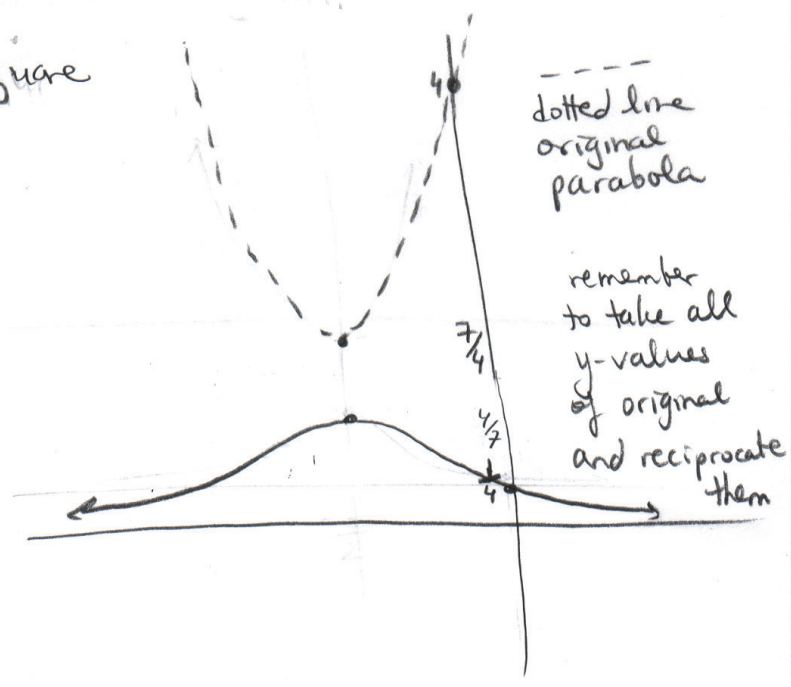 quare
4
dotted line
original
parabola
7/4
remember
to take all
y-values
of original
and reciprocate
them
4/7
1/4